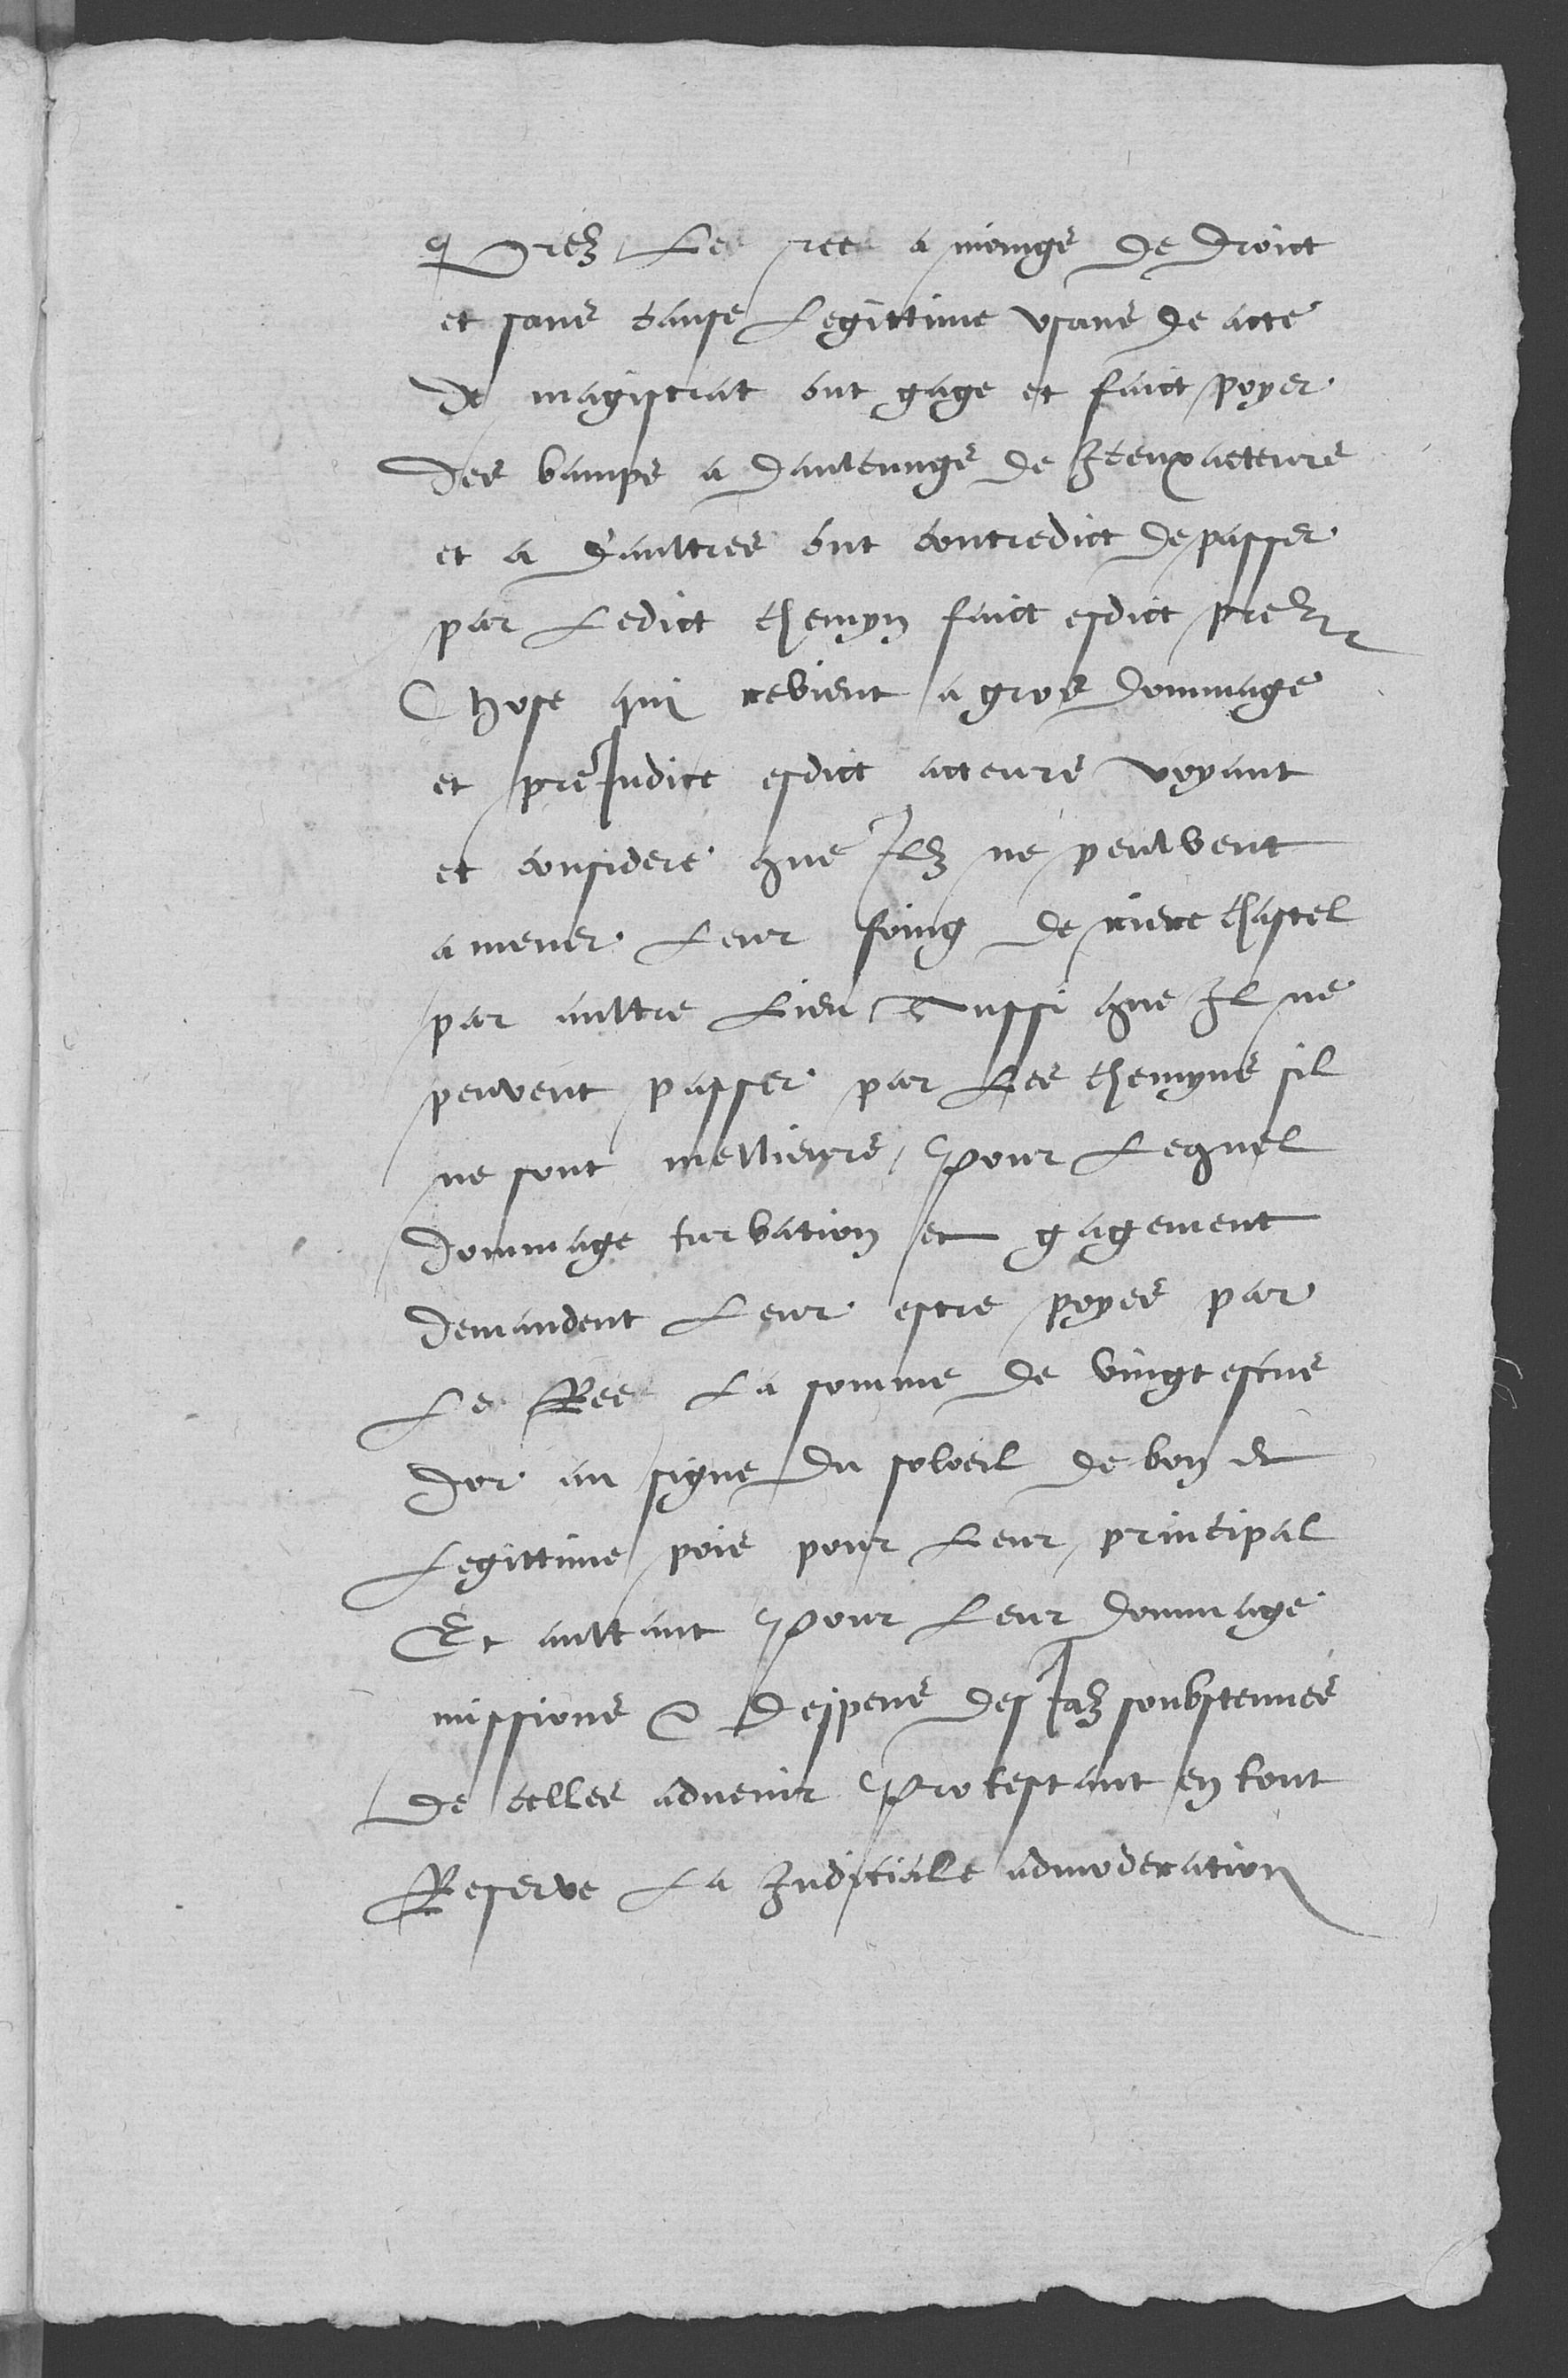 Orez Les rees a moings de droict
et sans cause Legittime usans de acte
de magistrat ont gage et faict poyer
des bamps a daulcungs de Iceux acteurs
et a daultres ont contredict de passer
par Ledict chemyn faict esdict prelz
Chose qui revient a gros dommage
et preIudice esdict acteurs voyant
et considere que Ilz ne peulvent
amener Leur foing de riere chastel
par aultre Lieu Aussi que Il ne
peuvent passer par Les chemyns sil
ne sont mellieurs, Pour Lequel
dommage turbation et gagement
demandent Leur estre poyes par
Les Rees La somme de vingt escus
dor au signe du soloeil de bon et
Legittime pois pour Leur principal
Et aultant Pour Leur dommage
missions & despens desIaz soubstenues
de celles advenir Protestant en tout
Reserve La Iudiciale admoderation